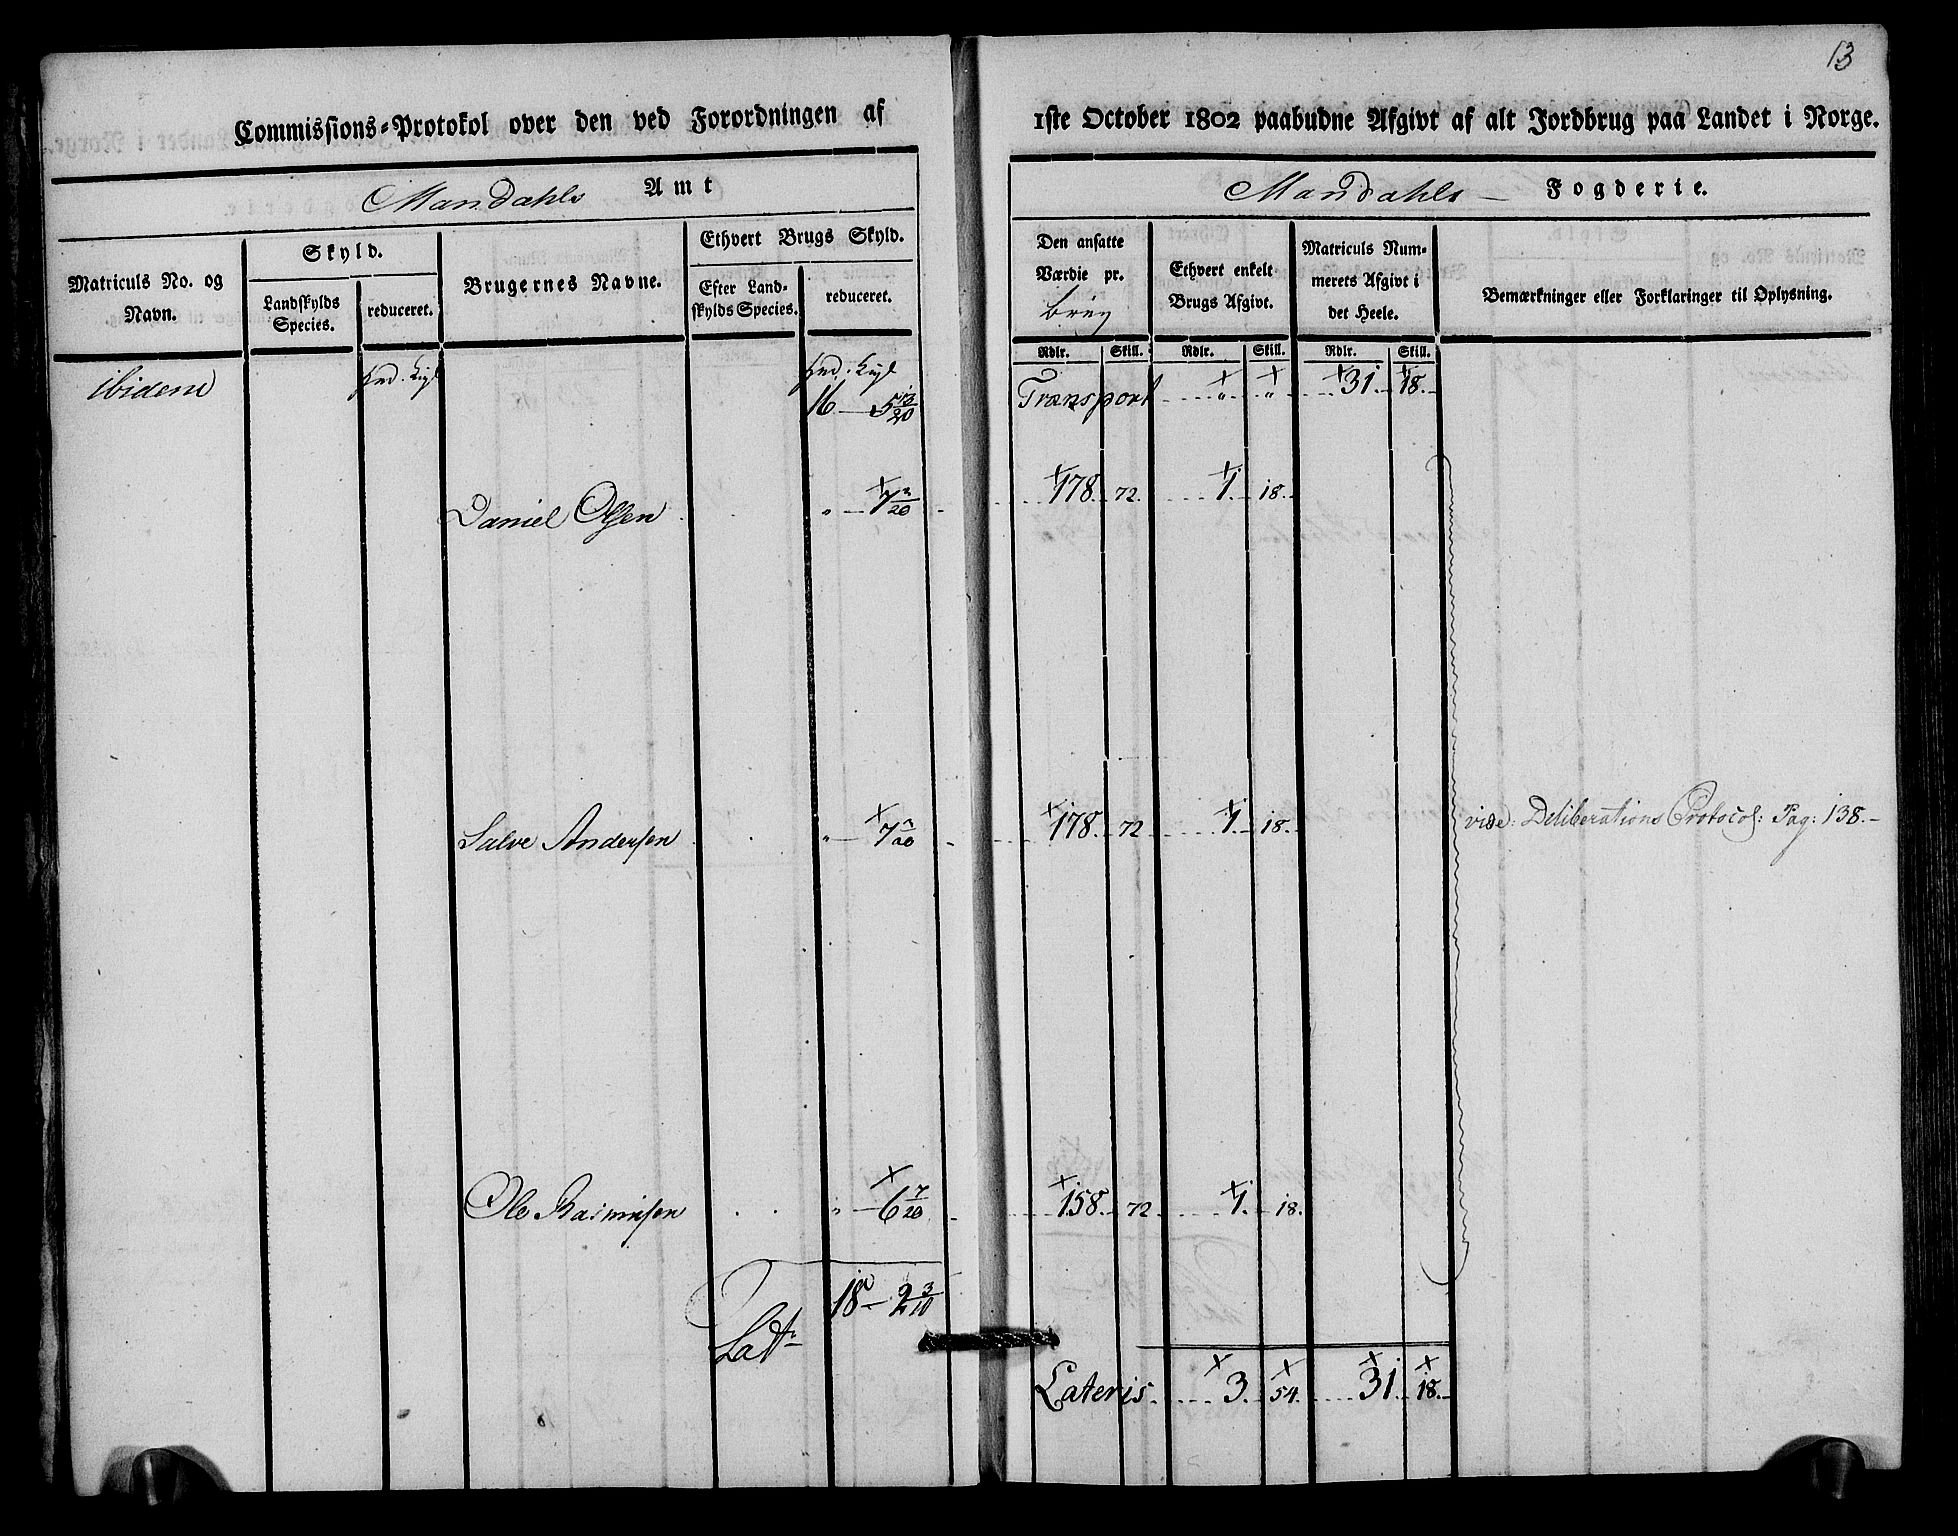 13
Commissions-Protokol over den ved Forordningen af 1ste October 1802 paabudne Afgivt af alt Jordbrug paa Landet i Norge.
Mandahls Amt
Mandahls Fogderie.
Matriculs No. og Navn.
Skyld.
Landskylds Species.
reduceret.
Brugernes Navne.
Ethvert Brugs Skyld.
Efter Landskylds Species.
reduceret.
Den ansatte Værdie pr. brug
Ethvert enkelt Brugs Afgivt.
Matriculs Nummerets Afgivt i det Heele.
Bemærkninger eller Forklaringer til Oplysning.
Rdlr. Skill. Rdlr. Skill. Rdlr. Skill.
ibidem
16 — 5 13/20 Transport " " 31. 18.
Daniel Olsen " — 7 3/20 178. 72. 1. 18.
Salve Andersen " — 7 3/20 178. 72. 1. 18. vide: Deliberations Protocol: Pag: 138.
Ole Rasmusen " — 6 7/20 158. 72. 1. 18.
Latr 18 — 2 3/10
Lateris 3. 54. 31. 18.